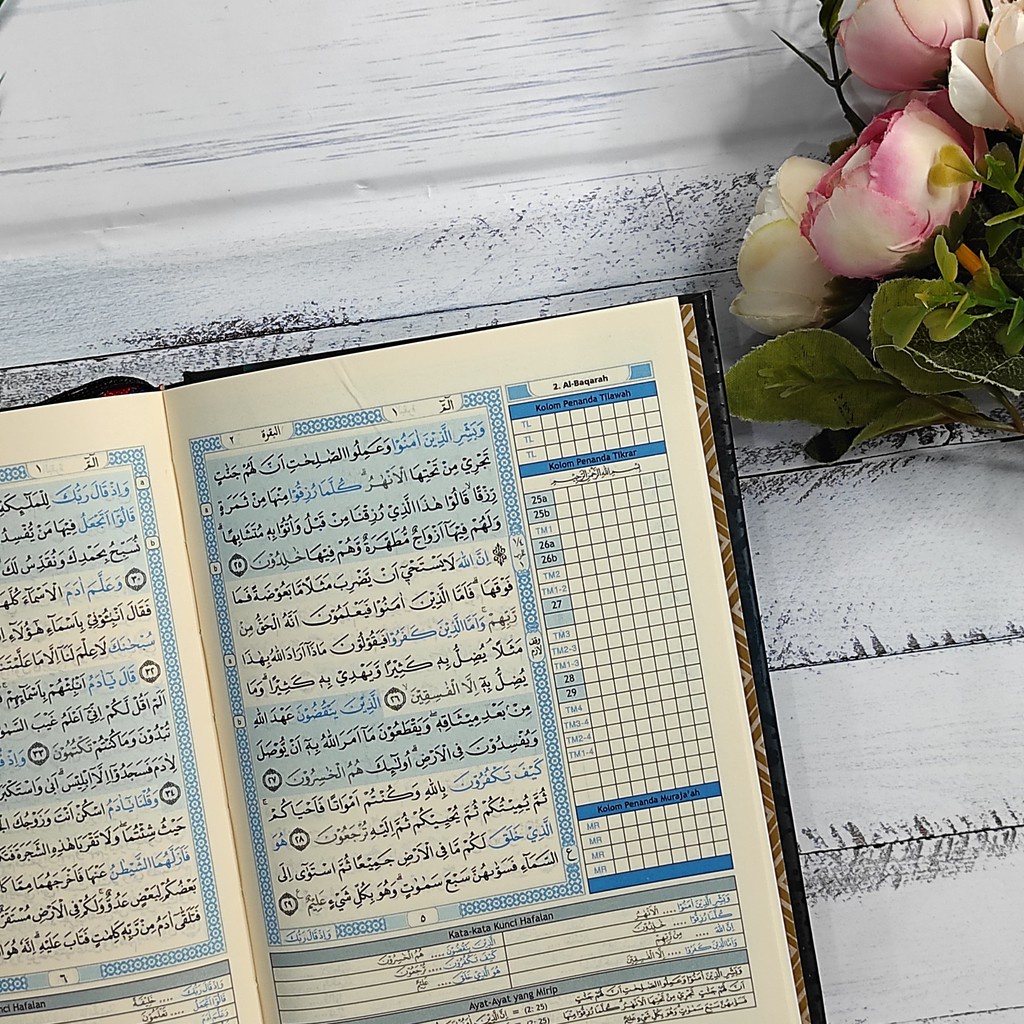 البقرة ٢
١
الٓمّٓ
وَبَشِّرِ الَّذِيْنَ اٰمَنُوْا وَعَمِلُوا الصّٰلِحٰتِ اَنَّ لَهُمْ جَنّٰتٍ
تَجْرِيْ مِنْ تَحْتِهَا الْاَنْهٰرُ ۗ كُلَّمَا رُزِقُوْا مِنْهَا مِنْ ثَمَرَةٍ
رِّزْقًا ۙ قَالُوْا هٰذَا الَّذِيْ رُزِقْنَا مِنْ قَبْلُ وَاُتُوْا بِهٖ مُتَشَابِهًا ۗ
وَلَهُمْ فِيْهَآ اَزْوَاجٌ مُّطَهَّرَةٌ وَّهُمْ فِيْهَا خٰلِدُوْنَ ٢٥
اِنَّ اللّٰهَ لَا يَسْتَحْيٖٓ اَنْ يَّضْرِبَ مَثَلًا مَّا بَعُوْضَةً فَمَا
فَوْقَهَا ۗ فَاَمَّا الَّذِيْنَ اٰمَنُوْا فَيَعْلَمُوْنَ اَنَّهُ الْحَقُّ مِنْ
رَّبِّهِمْ ۚ وَاَمَّا الَّذِيْنَ كَفَرُوْا فَيَقُوْلُوْنَ مَاذَآ اَرَادَ اللّٰهُ بِهٰذَا
مَثَلًا ۘ يُضِلُّ بِهٖ كَثِيْرًا وَّيَهْدِيْ بِهٖ كَثِيْرًا ۗ وَمَا
يُضِلُّ بِهٖٓ اِلَّا الْفٰسِقِيْنَ ٢٦ الَّذِيْنَ يَنْقُضُوْنَ عَهْدَ اللّٰهِ
مِنْۢ بَعْدِ مِيْثَاقِهٖ ۖ وَيَقْطَعُوْنَ مَآ اَمَرَ اللّٰهُ بِهٖٓ اَنْ يُّوْصَلَ
وَيُفْسِدُوْنَ فِى الْاَرْضِ ۗ اُولٰۤىِٕكَ هُمُ الْخٰسِرُوْنَ ٢٧
كَيْفَ تَكْفُرُوْنَ بِاللّٰهِ وَكُنْتُمْ اَمْوَاتًا فَاَحْيَاكُمْ ۚ
ثُمَّ يُمِيْتُكُمْ ثُمَّ يُحْيِيْكُمْ ثُمَّ اِلَيْهِ تُرْجَعُوْنَ ٢٨ هُوَ
الَّذِيْ خَلَقَ لَكُمْ مَّا فِى الْاَرْضِ جَمِيْعًا ثُمَّ اسْتَوٰٓى اِلَى
السَّمَاۤءِ فَسَوّٰىهُنَّ سَبْعَ سَمٰوٰتٍ ۗ وَهُوَ بِكُلِّ شَيْءٍ عَلِيْمٌ ٢٩
٥
وَاِذْ قَالَ رَبُّكَ
2. Al-Baqarah
Kolom Penanda Tilawah
TL
TL
TL
Kolom Penanda Tikrar
25a
25b
TM1
26a
26b
TM2
TM1-2
27
TM3
TM2-3
TM1-3
28
29
TM4
TM3-4
TM2-4
TM1-4
Kolom Penanda Muraja'ah
MR
MR
MR
MR
Kata-kata Kunci Hafalan
وَبَشِّرِ الَّذِيْنَ اٰمَنُوْا .... الْاَنْهٰرُ
كُلَّمَا رُزِقُوْا .... خٰلِدُوْنَ
اِنَّ اللّٰهَ .... مِنْ رَّبِّهِمْ
وَاَمَّا الَّذِيْنَ كَفَرُوْا .... اِلَّا الْفٰسِقِيْنَ
الَّذِيْنَ يَنْقُضُوْنَ .... هُمُ الْخٰسِرُوْنَ
كَيْفَ تَكْفُرُوْنَ .... تُرْجَعُوْنَ
هُوَ الَّذِيْ خَلَقَ .... عَلِيْمٌ
Ayat-Ayat yang Mirip
(2: 25)
١
الٓمّٓ
وَاِذْ قَالَ رَبُّكَ لِلْمَلٰۤىِٕكَةِ
قَالُوْٓا اَتَجْعَلُ فِيْهَا مَنْ يُّفْسِدُ
نُسَبِّحُ بِحَمْدِكَ وَنُقَدِّسُ لَكَ
٣٠ وَعَلَّمَ اٰدَمَ الْاَسْمَاۤءَ كُلَّهَا
فَقَالَ اَنْۢبِـُٔوْنِيْ بِاَسْمَاۤءِ هٰٓؤُلَاۤءِ
سُبْحٰنَكَ لَا عِلْمَ لَنَآ اِلَّا مَا عَلَّمْتَنَا
٣٢ قَالَ يٰٓاٰدَمُ اَنْۢبِئْهُمْ بِاَسْمَاۤىِٕهِمْ
اَلَمْ اَقُلْ لَّكُمْ اِنِّيْٓ اَعْلَمُ غَيْبَ
تُبْدُوْنَ وَمَا كُنْتُمْ تَكْتُمُوْنَ ٣٣
لِاٰدَمَ فَسَجَدُوْٓا اِلَّآ اِبْلِيْسَ اَبٰى
٣٤ وَقُلْنَا يٰٓاٰدَمُ اسْكُنْ اَنْتَ وَزَوْجُكَ
حَيْثُ شِئْتُمَا ۖ وَلَا تَقْرَبَا هٰذِهِ الشَّجَرَةَ
فَاَزَلَّهُمَا الشَّيْطٰنُ عَنْهَا فَاَخْرَجَهُمَا مِمَّا
بَعْضُكُمْ لِبَعْضٍ عَدُوٌّ ۚ وَلَكُمْ فِى الْاَرْضِ مُسْتَقَرٌّ
فَتَلَقّٰٓى اٰدَمُ مِنْ رَّبِّهٖ كَلِمٰتٍ فَتَابَ عَلَيْهِ ۗ اِنَّهٗ هُوَ
٦
Hafalan